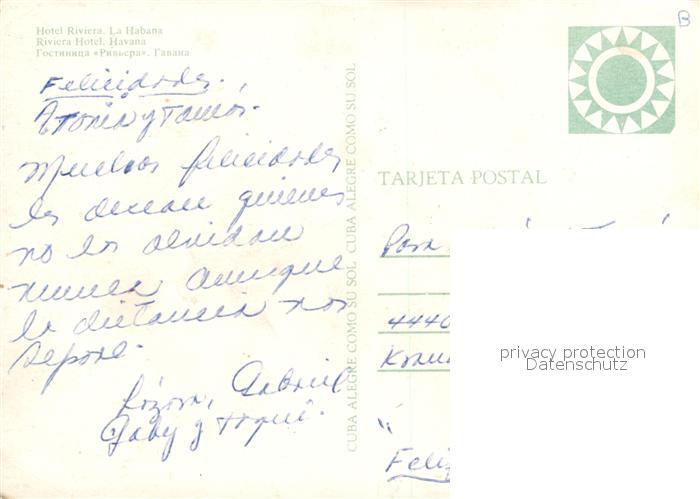 B
Hotel Riviera. La Habana
Riviera Hotel. Havana
Гостиница «Ривьера». Гавана
Felicidades.
y Tomás.
Muchas felicidades
les desean quienes
no los olvidan
nunca aunque
la distancia nos
separe.
Gabriel
Gaby y
CUBA ALEGRE COMO SU SOL CUBA ALEGRE COMO SU SOL
TARJETA POSTAL
Para
4440
privacy protection
Datenschutz